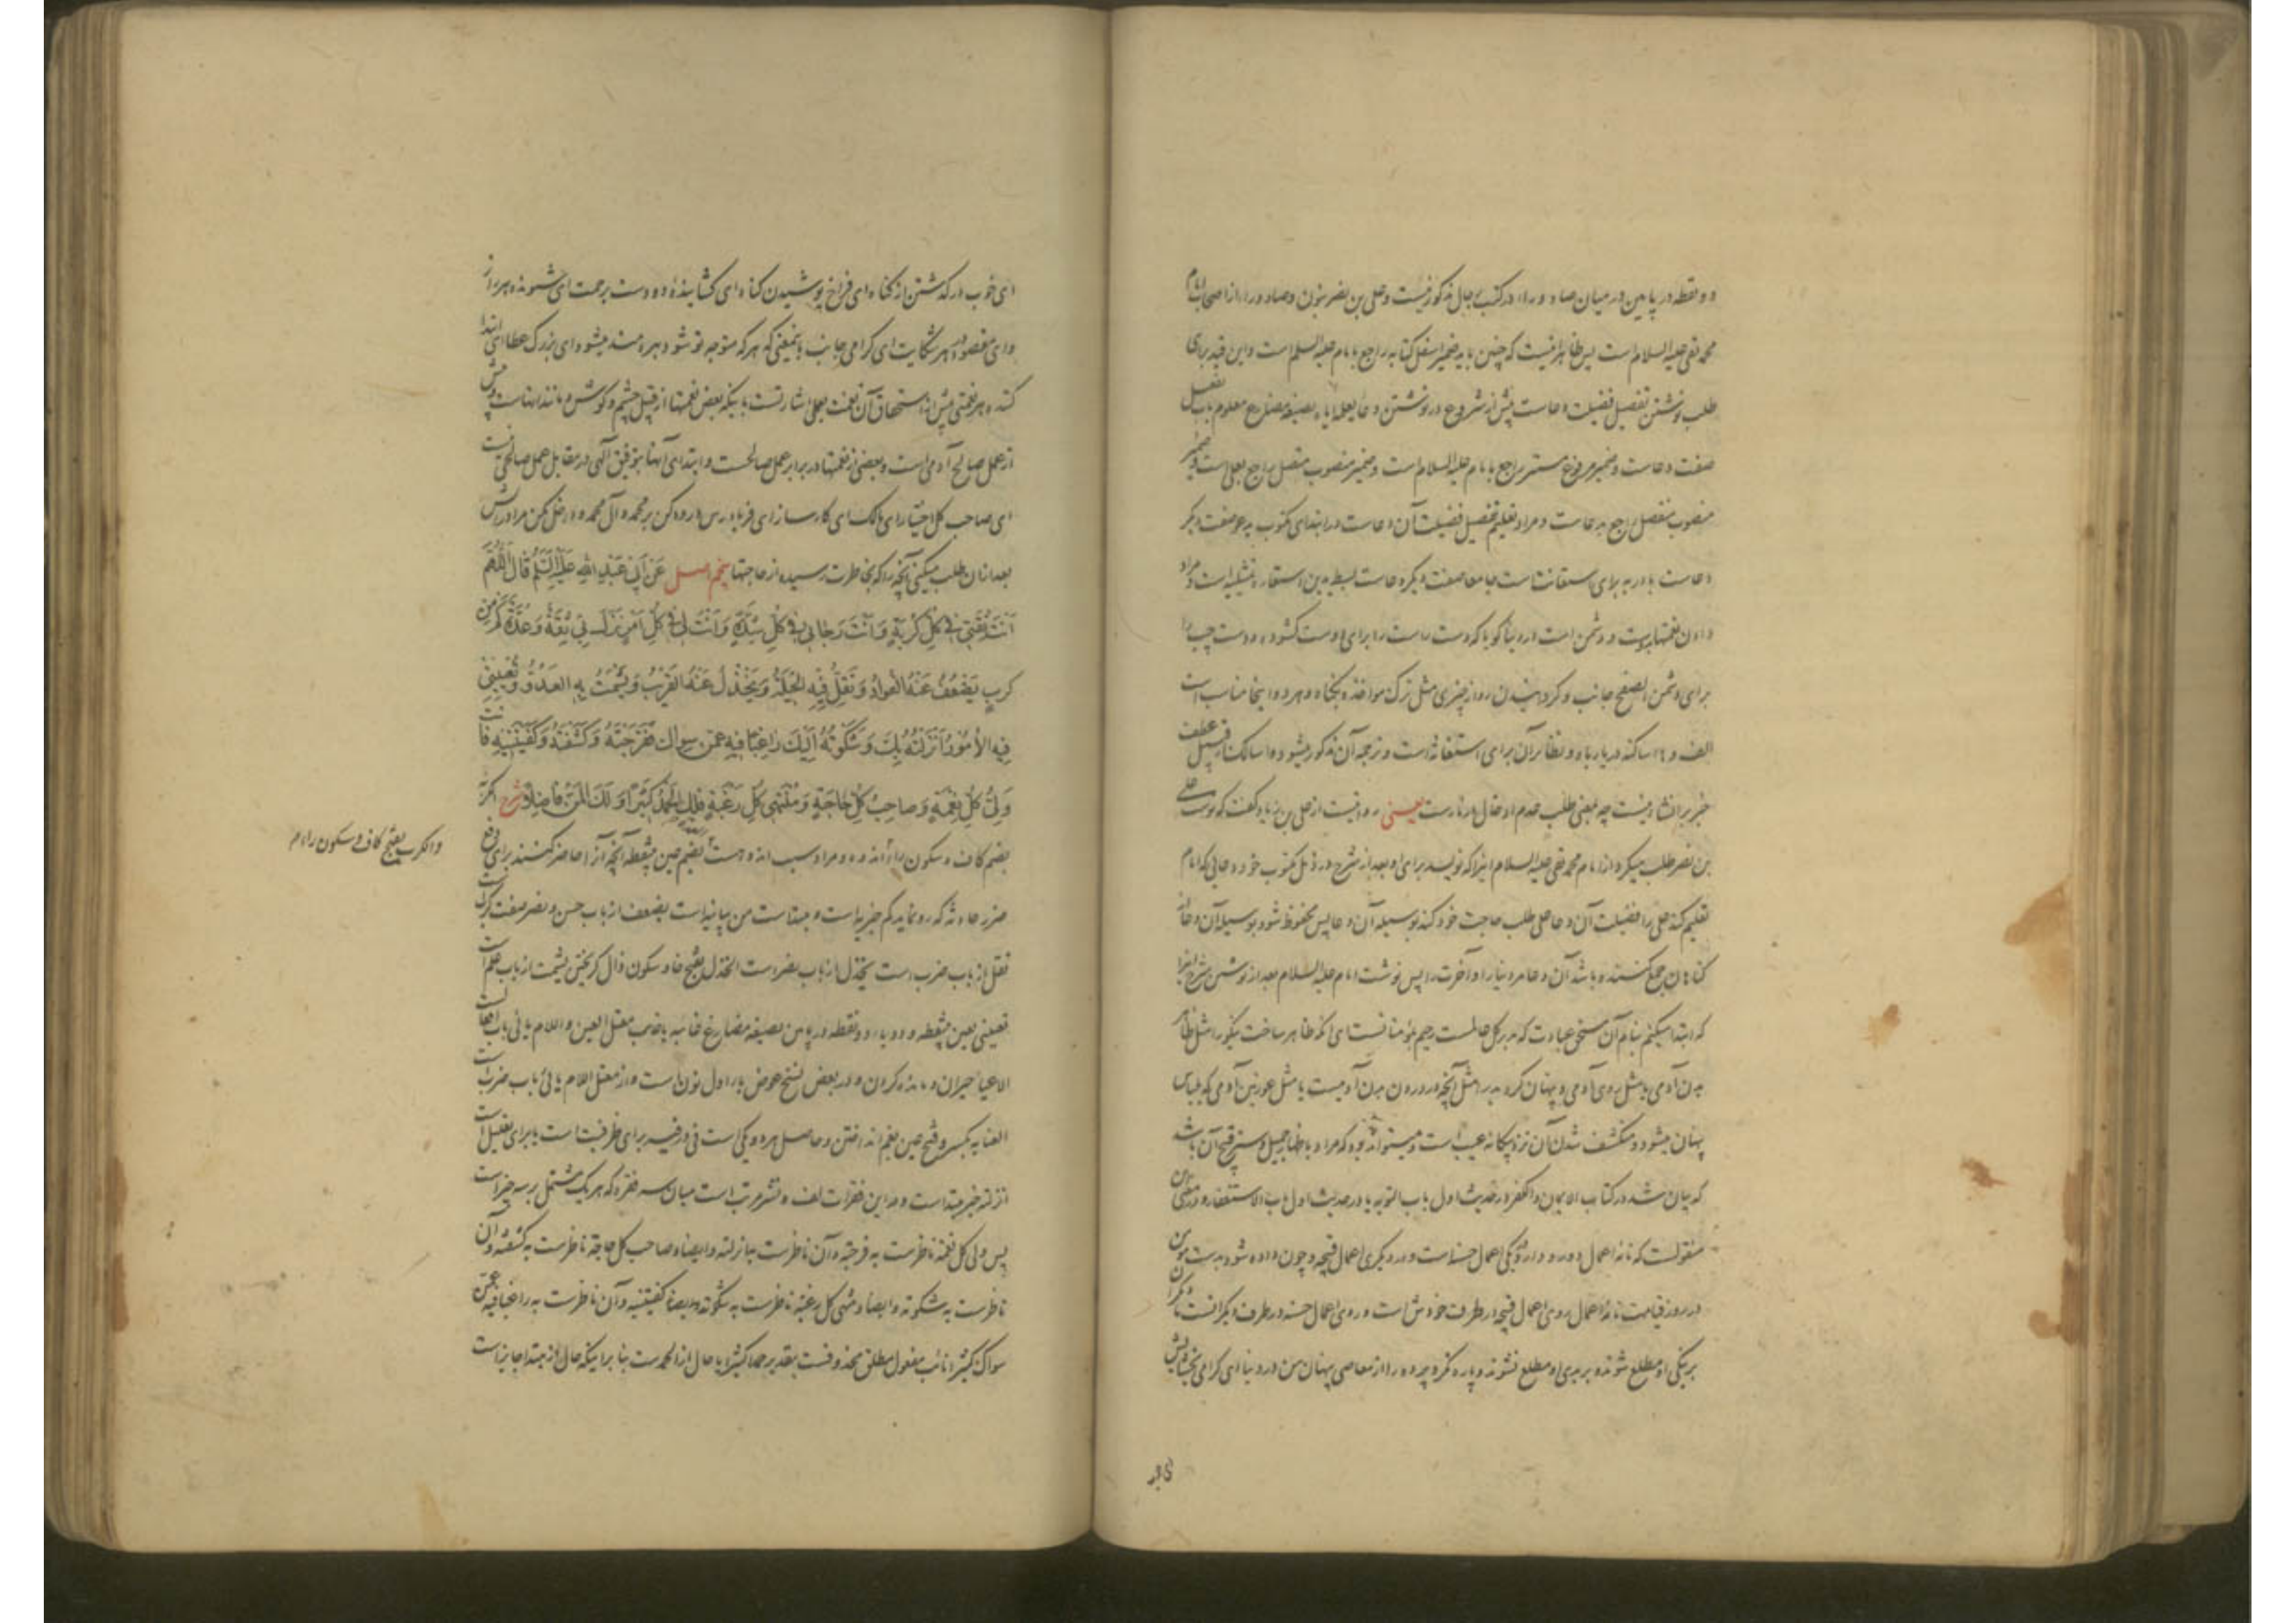 دو نقطه در پایین در میان صاد و راء در کتب رجال مذکور نیست و علی بن نصر بنون و صاد و راء از اصحاب امام
محمد تقی علیه السلام است پس ظاهر اینست که چنین باید ضمیر اسفل کتابه راجع بامام علیه السلم است و این قید برای
طلب نوشتن تفصیل فضیلت دعاست پیش از شروع در نوشتن دعا یعلمه ایاه بصیغه مضارع معلوم باب تفعیل
صفت دعاست و ضمیر مرفوع مستتر راجع بامام علیه السلام است و ضمیر منصوب متصل راجع بعلی است و ضمیر
منصوب منفصل راجع بدعاست و مراد تعلیم تفصیل فضیلت آن دعاست در ابتدای مکتوب یدعو صفت دیگر
دعاست باء در به برای استعانت است جامعا صفت دیگر دعاست بسط یدین استعاره تمثیلیه است و مراد
دادن نعمتها بدوست و دشمن است در دنیا گویا که دست راست را برای دوست گشوده و دست چپ را
برای دشمن الصفح جانب و گردانیدن رو از چیزی مثل ترک مواخذه بگناه و هر دو اینجا مناسب است
الف و هاء ساکنه در یا رباه و نظایر آن برای استغاثه است و ترجمه آن مذکور میشود و اسالک از قبیل عطف
خبر بر انشا نیست چه بمعنی طلب عدم ادخال در نارست یعنی روایتست از علی بن زیاد گفت که نوشت علی
بن نصر طلب میکرد از امام محمد تقی علیه السلام اینرا که نویسد برای او بعد از شرح در ذیل مکتوب خود دعایی که امام
تعلیم کند علی را فضیلت آن دعا علی طلب حاجت خود کند بوسیله آن دعا پس محفوظ شود بوسیله آن دعا از
گناهان جمع کننده باشد آن دعا مر دنیا را و آخرت را پس نوشت امام علیه السلام بعد از نوشتن شرح اینرا
که ابتدا میکنم بنام آن مستحق عبادت که مدبر کل عالمست رحیم بمؤمنانست ای آنکه ظاهر ساخت نیکو را مثل ظاهر
بدن آدمی یا مثل روی آدمی و پنهان کرد بد را مثل آنچه در درون بدن آدمیست یا مثل عورتین آدمی که بلباس
پنهان میشود و منکشف شدن آن نزد بیگانه عیب است و میتواند بود که مراد باظهار جمیل و ستر قبیح آن باشد
که بیان شد در کتاب الایمان و الکفر در حدیث اول باب التوبه یا در حدیث اول باب الاستغفار و در بعضی
منقولست که نامه اعمال دو رو دارد در یکی اعمال حسنه است و در دیگری اعمال قبیحه و چون داده شود بدست مؤمن
در روز قیامت نامه اعمال روی اعمال قبیحه در طرف خودش است و روی اعمال حسنه در طرف دیگرانست تا دیگران
بر نیکی او مطلع شوند و بر بدی او مطلع نشوند و پاره نکرد پرده را از معاصی پنهان من در دنیا ای گرامی بخشایش
ای خوب درگذشتن از گناه ای فراخ پوشیدن گناه ای گشاینده دو دست برحمت ای شنونده هر راز
وای مقصود هر شکایت ای گرامی جانب باینمعنی که هر که متوجه تو شود بهره مند میشود ای بزرگ عطا ای ابتدا
کننده هر نعمتی پیش از استحقاق آن نعمت بعمل اشارتست باینکه بعض نعمتها از قبیل چشم و گوش و مانند اینهاست پیش
از عمل صالح آدمی است و بعضی از نعمتها در برابر عمل صالحست و ابتدای آنها بتوفیق الهی در مقابل عمل صالحی نیست
ای صاحب کل اختیار ای مالک ای کارساز ای فریادرس درود کن بر محمد و آل محمد و داخل مکن مرا در آتش
بعد از آن طلب میکنی آنچه را که بخاطرت رسیده از حاجتها پنجم اصل عَنْ اَبِی عَبْدِ اللهِ عَلَیْهِ السَّلَمُ قَالَ اَللّٰهُمَّ
اَنْتَ ثِقَتِی فِی کُلِّ کُرْبَةٍ وَ اَنْتَ رَجَائِی فِی کُلِّ شِدَّةٍ وَ اَنْتَ لِی فِی کُلِّ اَمْرٍ نَزَلَ بِی ثِقَةٌ وَ عُدَّةٌ کَمْ مِنْ
کَرْبٍ یَضْعُفُ عَنْهُ الْفُوَادُ وَ تَقِلُّ فِیهِ الْحِیلَةُ وَ یَخْذُلُ عَنْهُ الْقَرِیبُ وَ یَشْمَتُ بِهِ الْعَدُوُّ وَ تُعْیِینِی
فِیهِ الْاُمُورُ اَنْزَلْتُهُ بِکَ وَ شَکَوْتُهُ اِلَیْکَ رَاغِبًا فِیهِ عَمَّنْ سِوَاکَ فَفَرَّجْتَهُ وَ کَشَفْتَهُ وَ کَفَیْتَنِیهِ فَاَنْتَ
وَلِیُّ کُلِّ نِعْمَةٍ وَ صَاحِبُ کُلِّ حَاجَةٍ وَ مُنْتَهَی کُلِّ رَغْبَةٍ فَلَکَ الْحَمْدُ کَثِیرًا وَ لَکَ الْمَنُّ فَاضِلًا شرح الکربه
بضم کاف و سکون راء اندوه و مراد سبب اندوهست بضم عین بینقطه آنچه آنرا حاضر کنند برای دفع
ضرر حادثه که رو نماید کم خبریه است و مبتداست من بیانیه است یضعف از باب حسن و نصر صفت کربست
تقل از باب ضرب است یخذل از باب نصر است الخذل بفتح خاء و سکون ذال گریختن یشمت از باب علم است
تعیینی بعین بینقطه و دو یاء دو نقطه در پایین بصیغه مضارع غایبه یایی معتل العین و اللام یائی باب افعالست
الاعیاء حیران و مانده کردن و در بعض نسخ عوض یاء اول نون است و از معتل اللام یائی باب ضربست
العنایه بکسر و فتح عین بغم انداختن و حاصل هر دو یکی است فی در فیه برای ظرفیت است یا برای تعلیل است
انزلته خبر مبتداست و در این فقرات لف و نشر مرتب است میان سه فقره که هر یک مشتمل بر سه چیز است
پس ولی کل نعمة ناظرست به فرجته و آن ناظرست بانزلته و ایضا صاحب کل حاجة ناظرست به کشفته و آن
ناظرست به شکوته و ایضا منتهی کل رغبة ناظرست به شکوته و ایضا کفیتنیه و آن ناظرست به راغبا فیه عمن
سواک کثیرا نائب مفعول مطلق محذوفست بتقدیر حمدا کثیرا یا حال از الحمدست بنا بر اینکه حال از مبتدا جایز است
والکرب بفتح کاف و سکون راء م